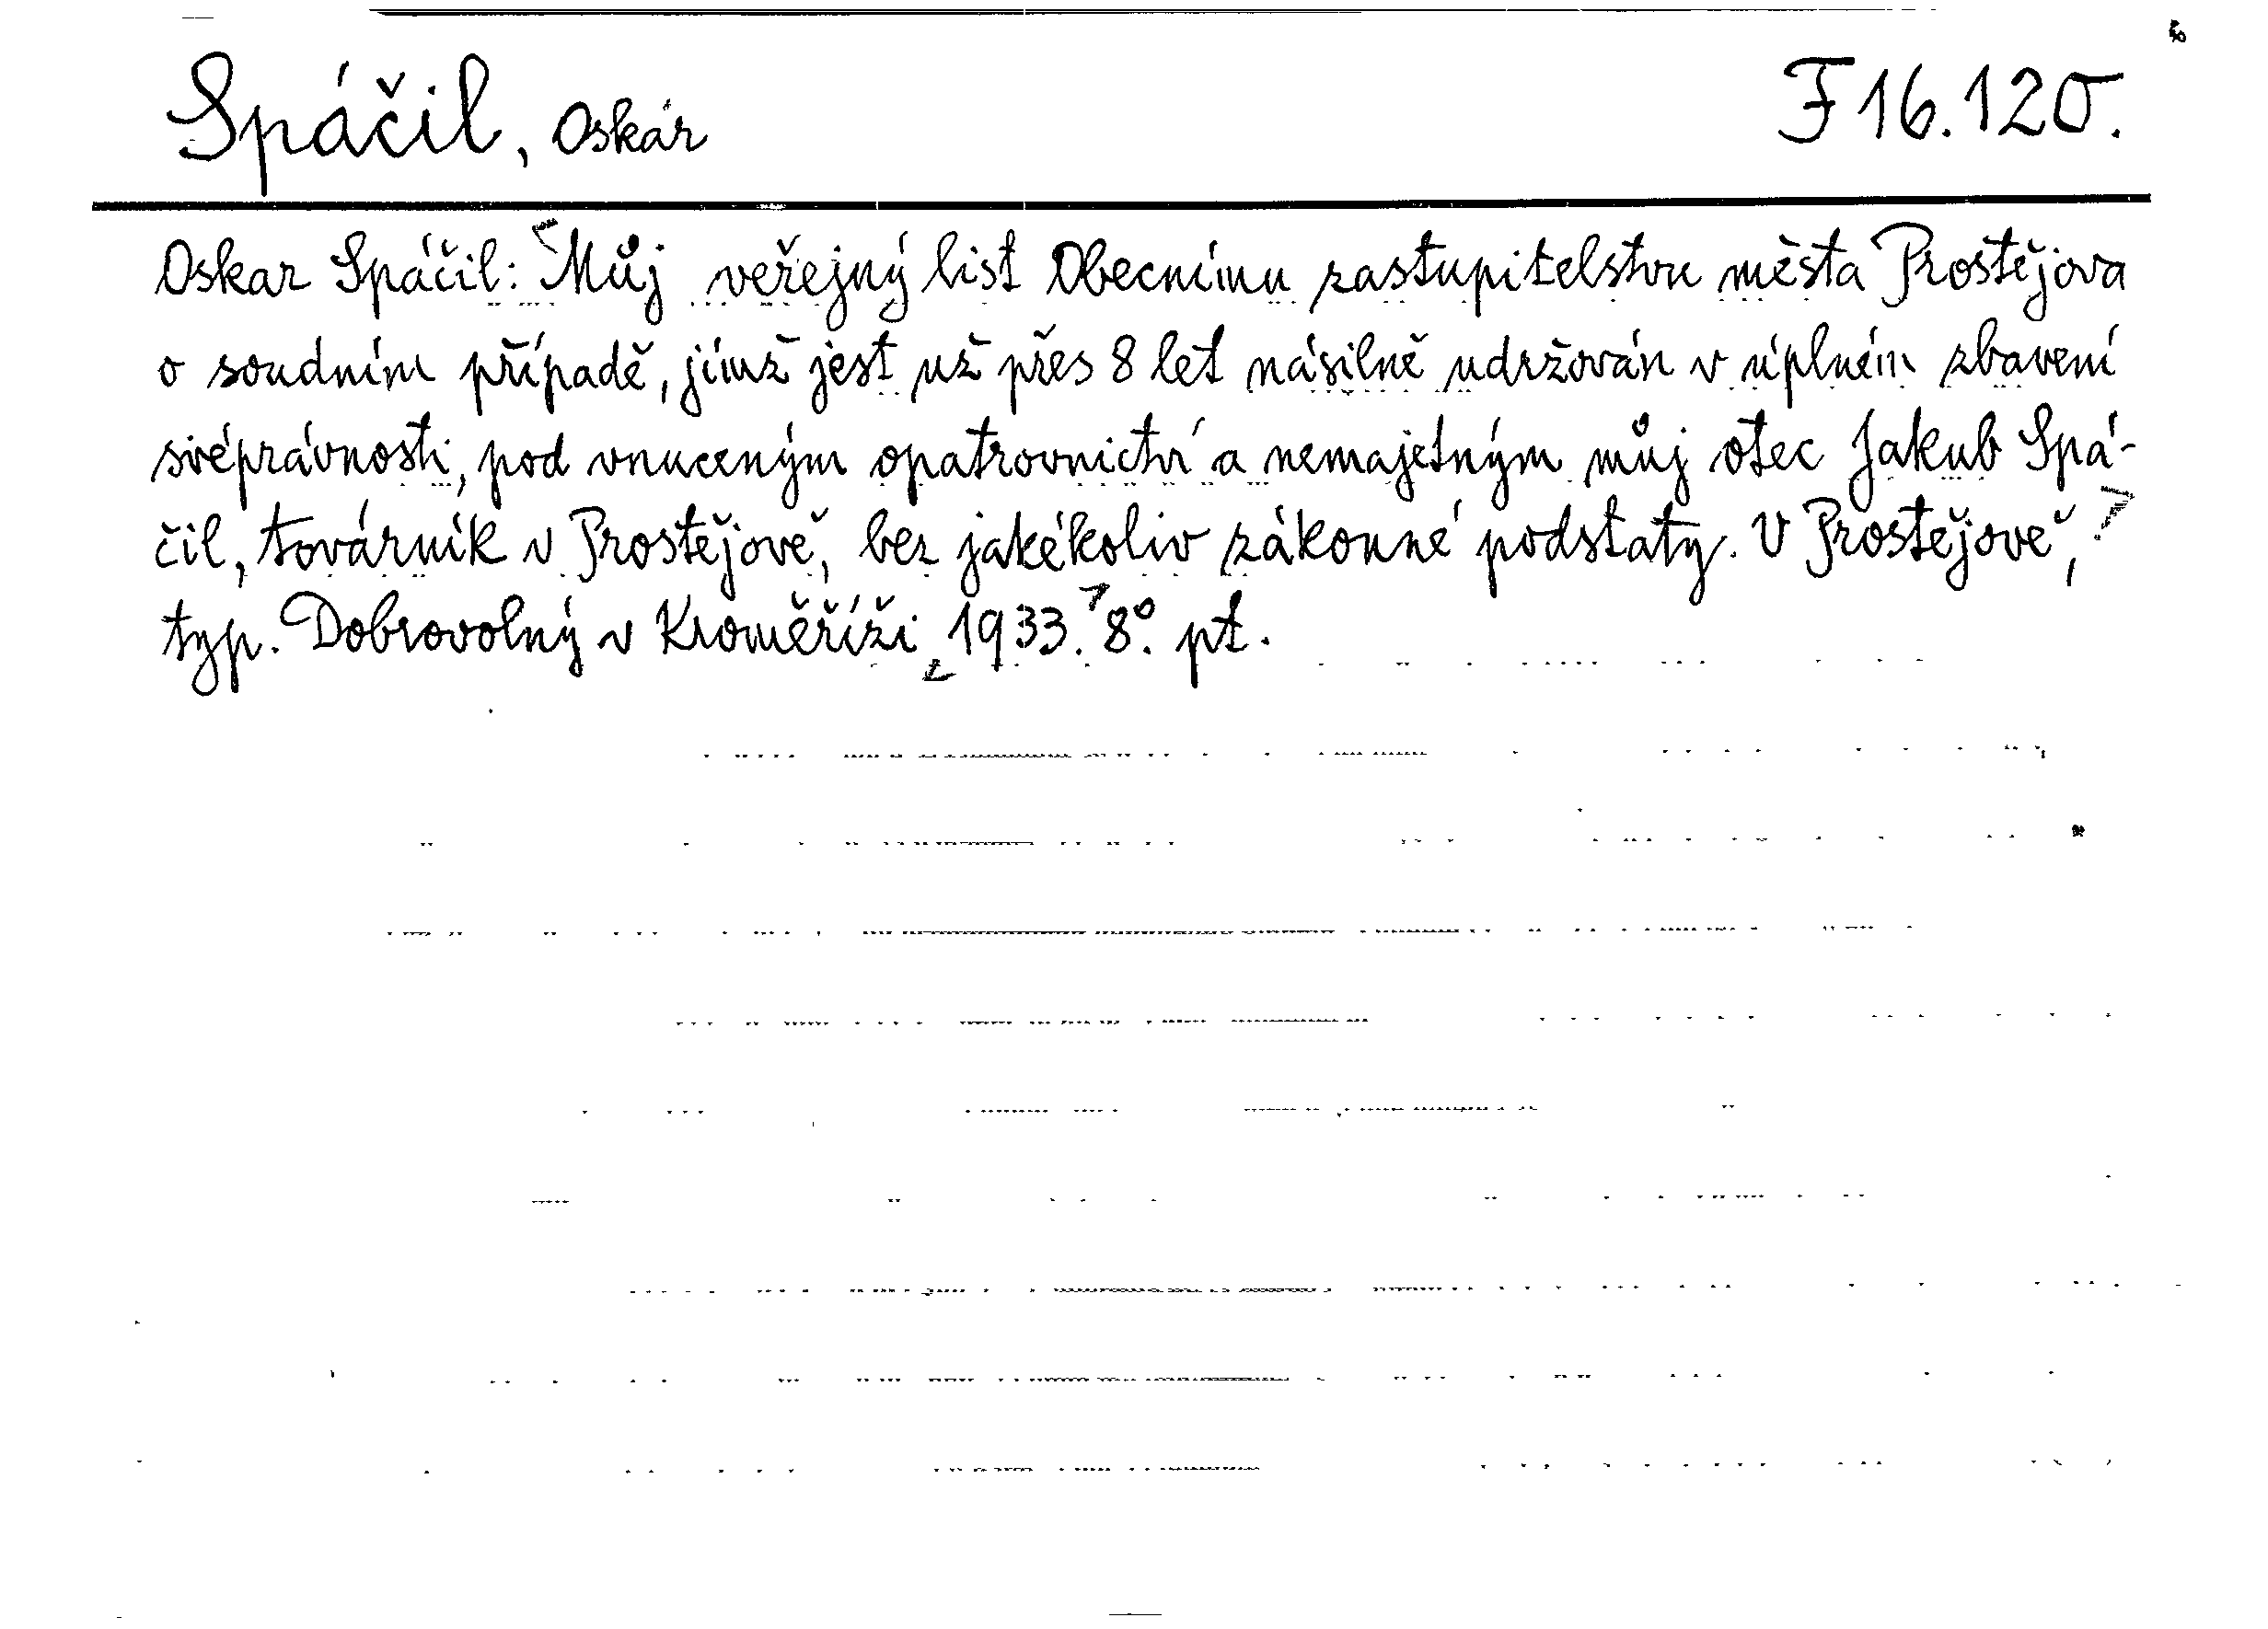 Spáčil, Oskár
F 16.120.
Oskar Spáčil: Můj veřejný list Obecnímu zastupitelstvu města Prostějova
o soudním případě, jímž jest už přes 8 let násilně udržován v úplném zbavení
svéprávnosti, pod vnuceným opatrovnictví a nemajetným můj otec Jakub Spá-
čil, továrník v Prostějově, bez jakékoliv zákonné podstaty. V Prostějově,
typ. Dobrovolný v Kroměříži 1933. 8°. pt.